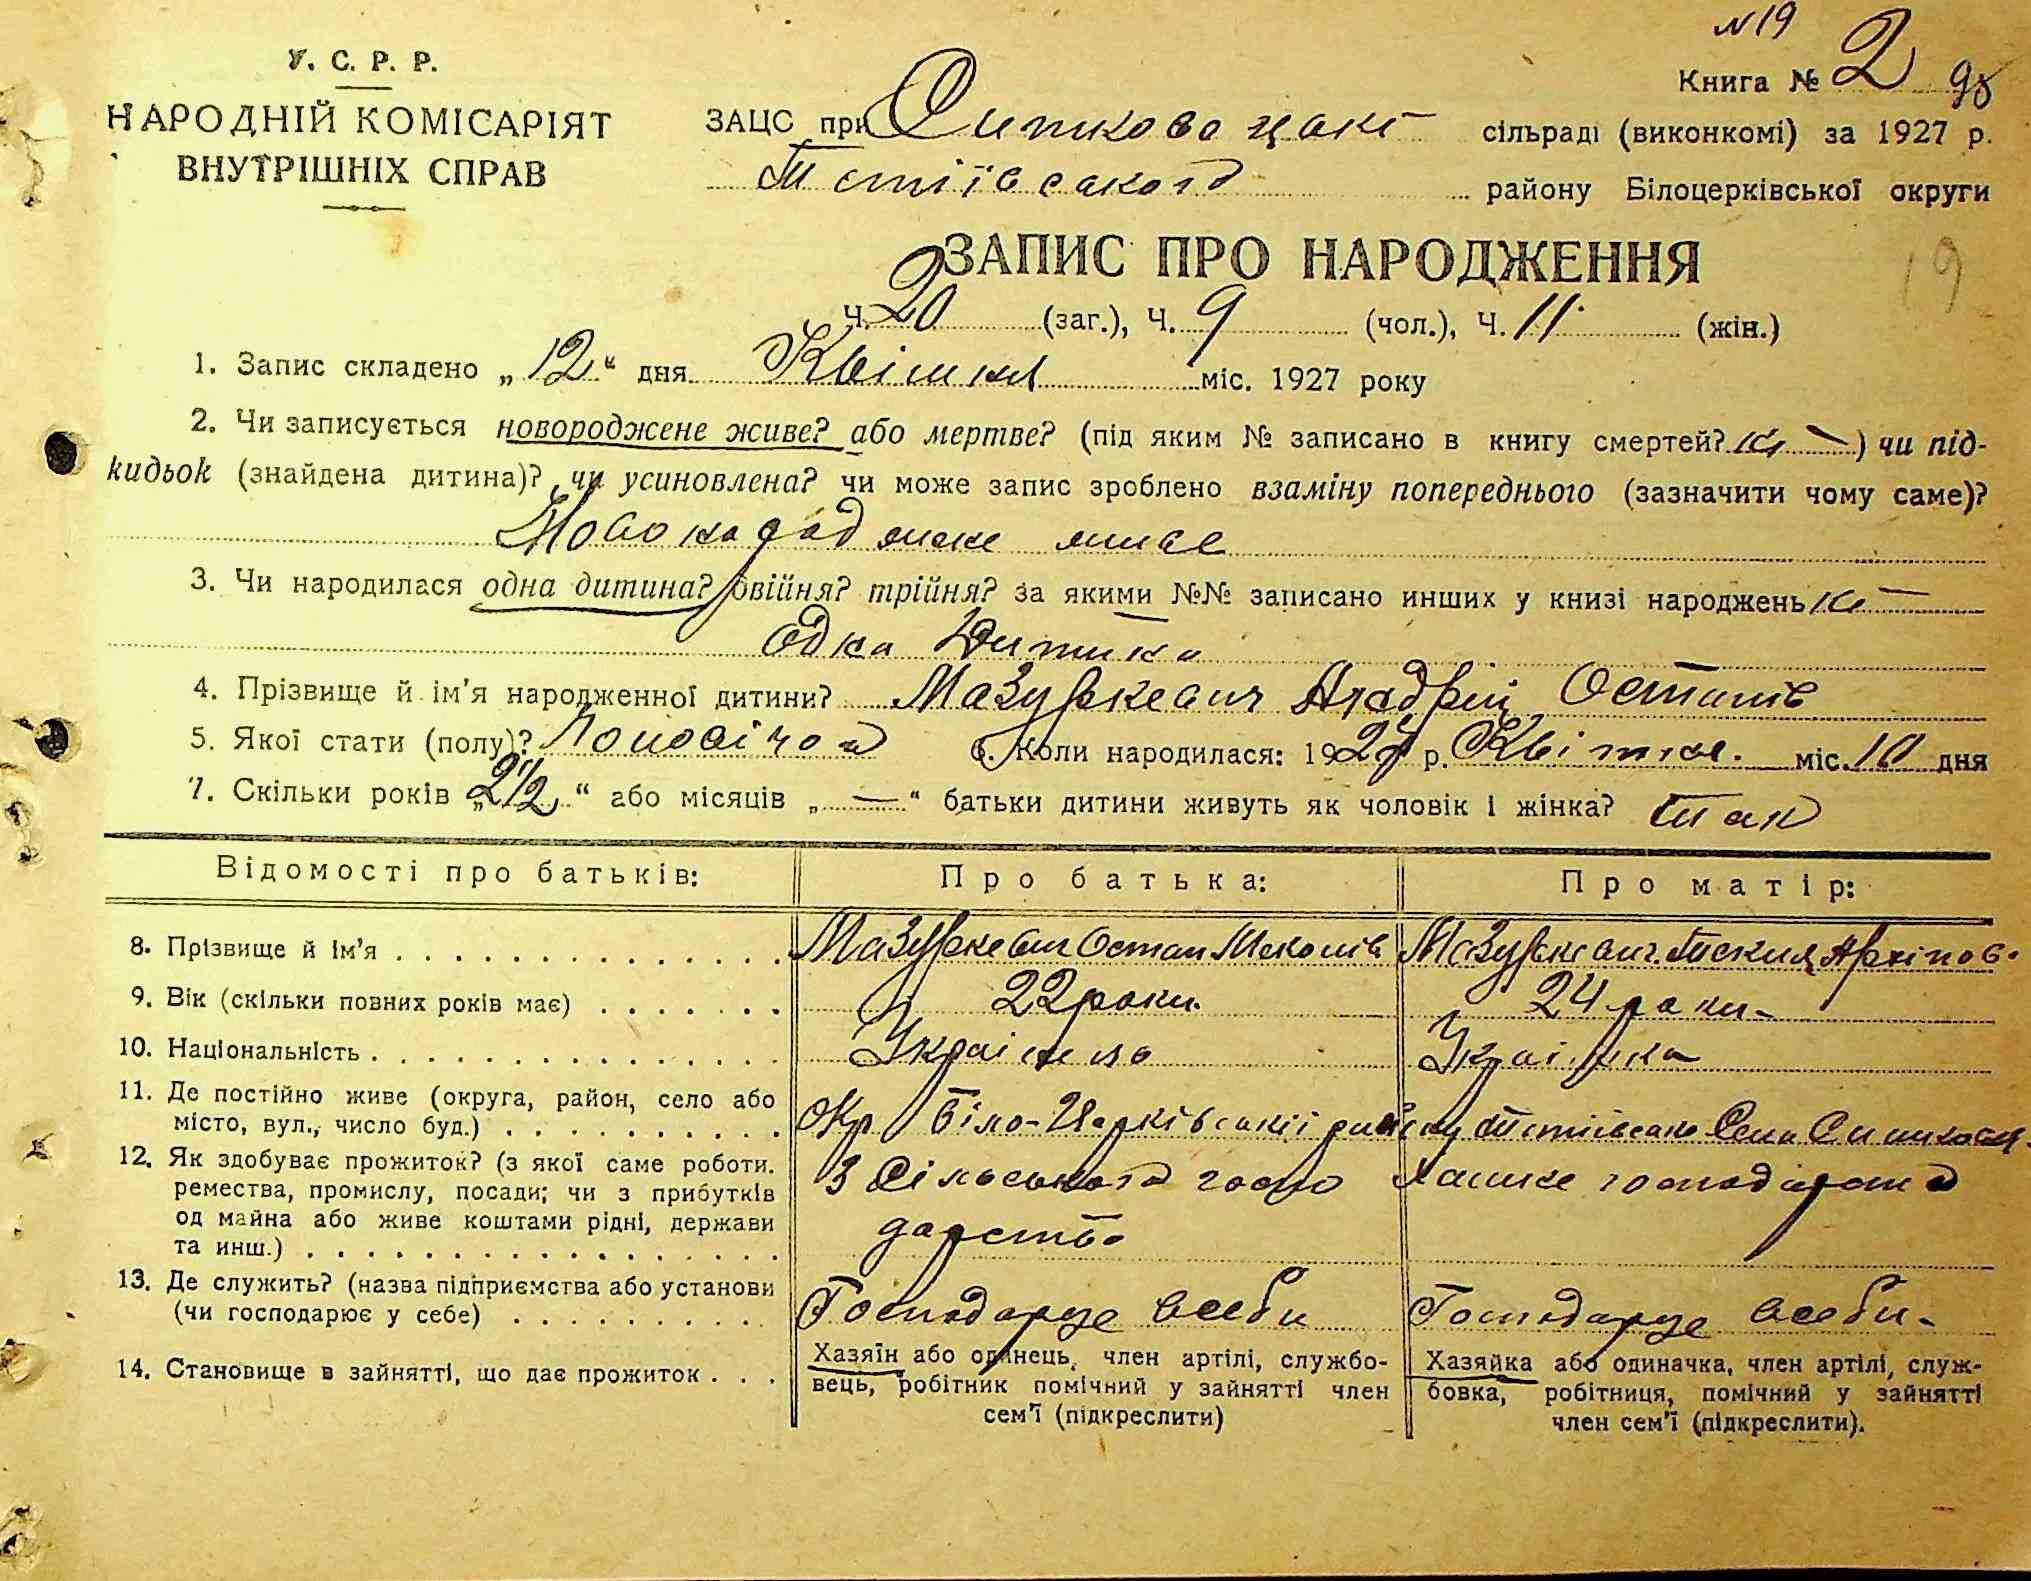 №19
У. С. Р. Р.
НАРОДНІЙ КОМІСАРІЯТ
ВНУТРІШНІХ СПРАВ
Книга № 2 98
ЗАЦС при сільраді (виконкомі) за 1927 р.
Тетіївського району Білоцерківської округи
ЗАПИС ПРО НАРОДЖЕННЯ
19
Ч. 20 (заг.), Ч. 9 (чол.), Ч. 11 (жін.)
1. Запис складено „12“ дня Квітня міс. 1927 року
2. Чи записується новороджене живе? або мертве? (під яким № записано в книгу смертей? ні —) чи під-
кидьок (знайдена дитина)? чи усиновлена? чи може запис зроблено взаміну попереднього (зазначити чому саме)?
живе
3. Чи народилася одна дитина? двійня? трійня? за якими №№ записано инших у книзі народжень ні —
одна Дитина
4. Прізвище й ім'я народженної дитини? Мазуркевич Андрій Остапів
5. Якої стати (полу)? 6. Коли народилася: 1927 р. Квітня. міс. 10 дня
7. Скільки років „2 1/2“ або місяців „—“ батьки дитини живуть як чоловік і жінка? так
Відомості про батьків: Про батька: Про матір:
8. Прізвище й ім'я Мазуркевич Остап Миколів Мазуркевич Текля Архіпов.
9. Вік (скільки повних років має) 22 роки. 24 роки
10. Національність Українець Українка
11. Де постійно живе (округа, район, село або
місто, вул., число буд.) Окр Біло-Церківської району Тетіївсько Село
12. Як здобуває прожиток? (з якої саме роботи.
ремества, промислу, посади; чи з прибутків З Сільського госпо
од майна або живе коштами рідні, держави
та инш.) дарства
13. Де служить? (назва підприємства або установи
(чи господарює у себе) Господарує всеби Господарує всеби
14. Становище в зайнятті, що дає прожиток
Хазяїн або одинець, член артілі, службо-
вець, робітник помічний у зайнятті член
сем'ї (підкреслити)
Хазяйка або одиначка, член артілі, служ-
бовка, робітниця, помічний у зайнятті
член сем'ї (підкреслити).